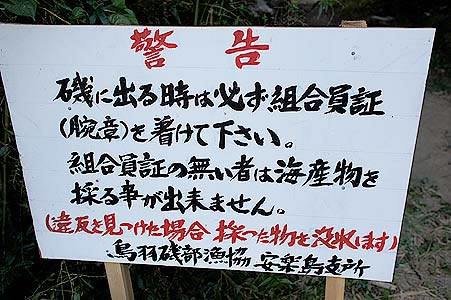 警告
磯に出る時は必ず組合員証
(腕章)を着けて下さい。
組合員証の無い者は海産物を
採る事が出来ません。
(違反を見つけた場合 採った物を没収します)
鳥羽磯部漁協 安楽島支所